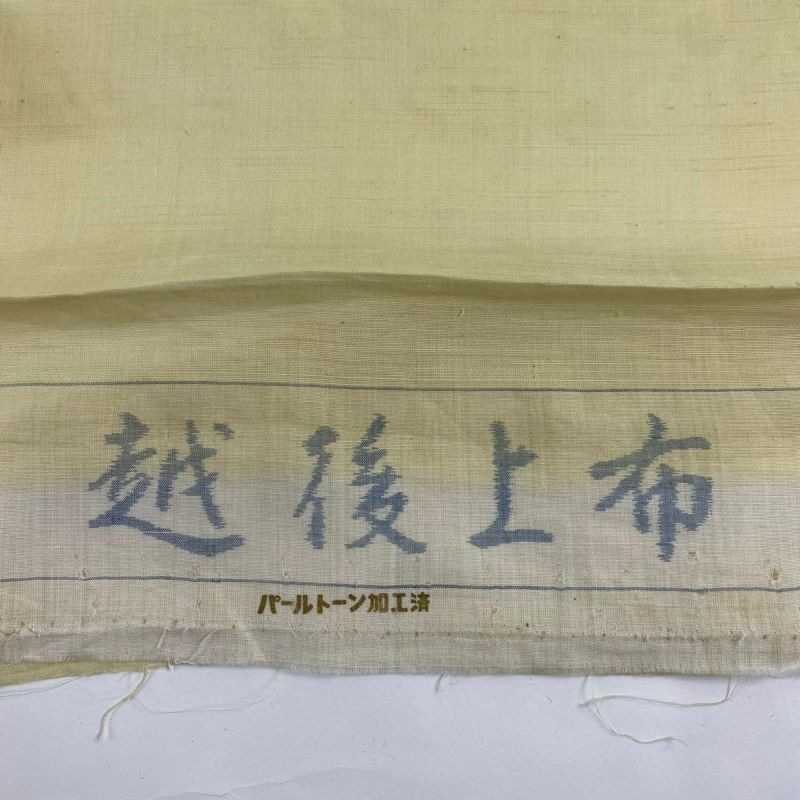 越後上布
パールトーン加工済